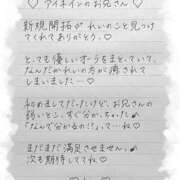 ♡ アイネインのお兄さん ♡
新規開拓が れいのこと見つけ
てくれてありがとう♡
とっても優しいオーラをまとていて、
なんだかれいの方が癒されて
しまいました…♡
和めましてだったけど、お兄さんの
弱いところ、すぐ分かっちゃった♡
「なんで分かるの!?」って…ね♡
まだまだ満足させません。
次も期待してて ね♡